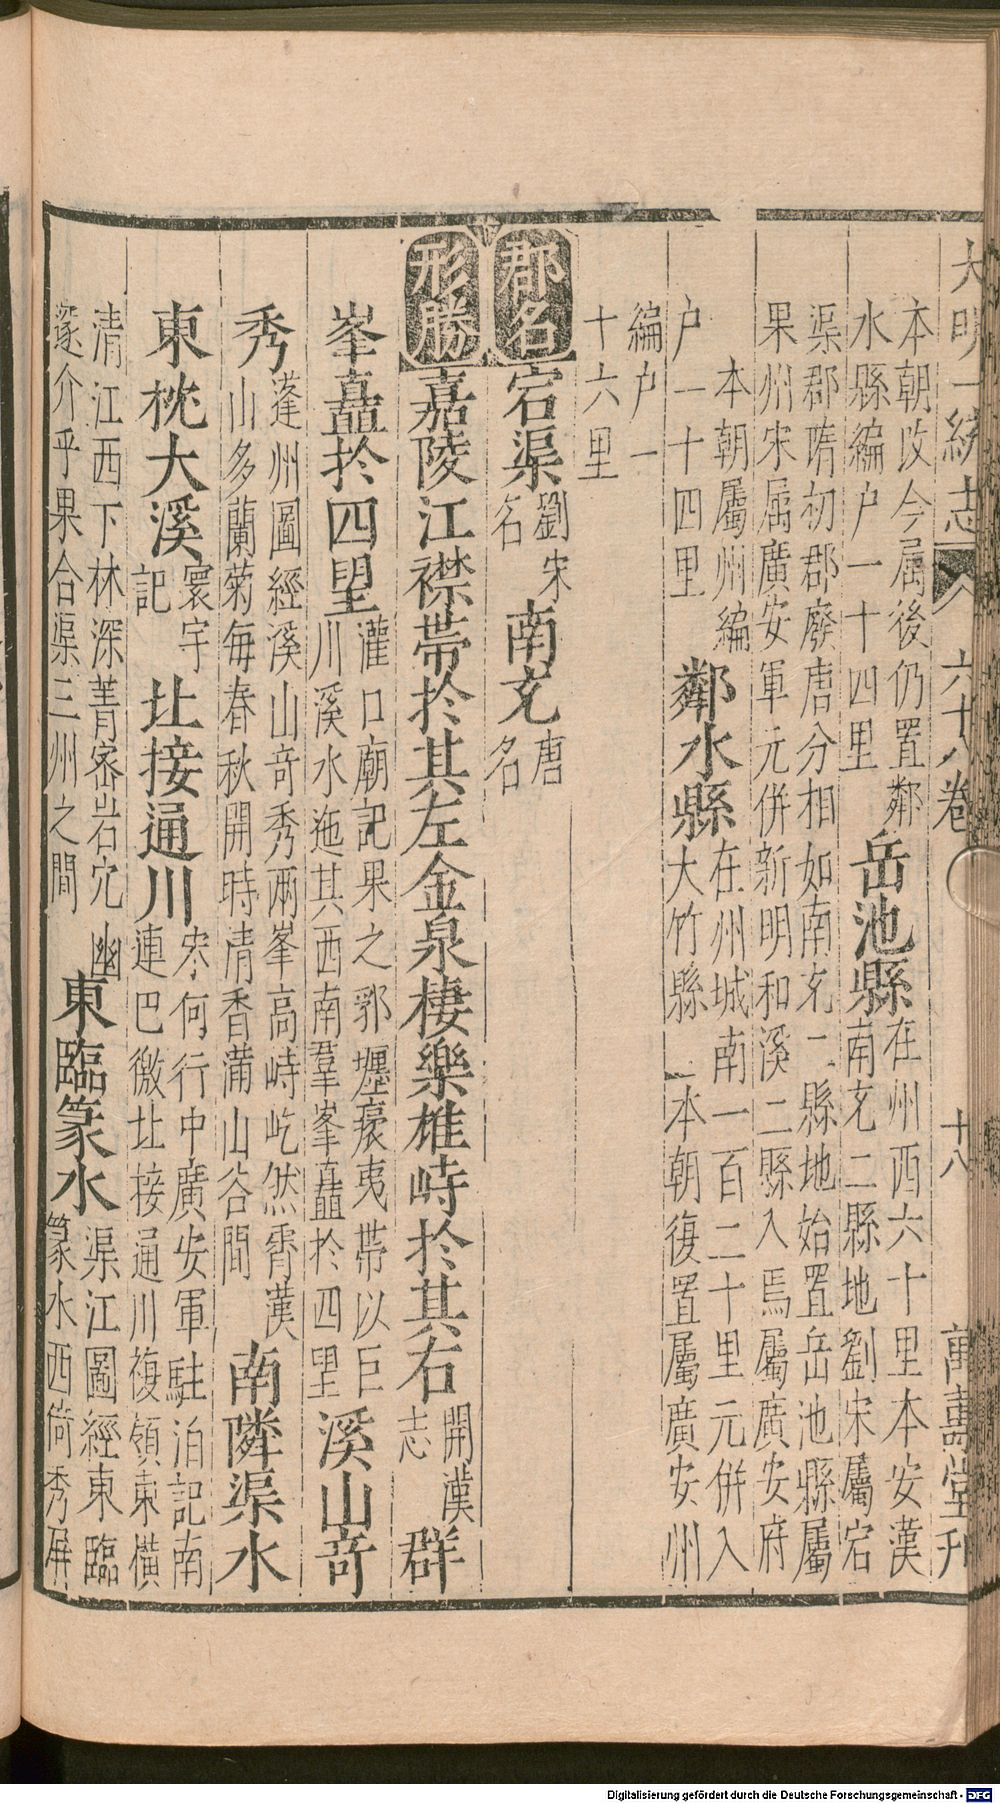 大明一統志 六十八卷 十八 萬壽堂刋
本朝改今属後仍置鄰
水縣編户一十四里
岳池縣
在州西六十里本安漢
南充二縣地劉宋屬宕
渠郡隋初郡廢唐分相如南充二縣地始置岳池縣屬
果州宋属廣安軍元併新明和溪二縣入焉屬廣安府
本朝屬州編
户一十四里
鄰水縣
在州城南一百二十里元併入
大竹縣 本朝復置屬廣安州
編户一
十六里
郡名
宕渠
劉宋
名
南充
唐
名
形勝
嘉陵江襟帶於其左金泉棲樂雄峙於其右
開漢
志
群
峯矗於四望
灌口廟記果之郛壥裛夷帶以巨
川溪水迤其西南羣峯矗於四望
溪山竒
秀
蓬州圖經溪山竒秀兩峯高峙屹然霄漢
山多蘭菊每春秋開時清香蒲山谷間
南隣渠水
東枕大溪
寰宇
記
北接通川
宋何行中廣安軍駐泊記南
連巴徼北接通川複領東橫
清江西下林深菁宻岩穴幽
邃介乎果合渠三州之間
東臨篆水
渠江圖經東臨
篆水西倚秀屏
Digitalisierung gefördert durch die Deutsche Forschungsgemeinschaft - DFG